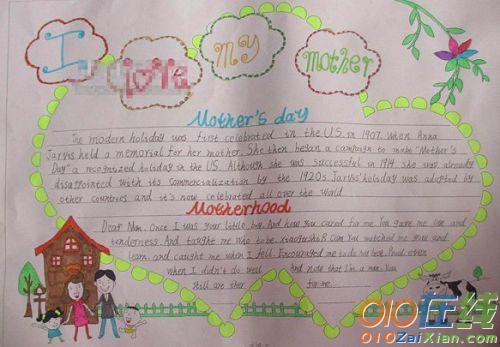 I Love My Mother
Mother's day
The modern holiday was first celebrated in the U.S. in 1907. When Anna
Jarvis held a memorial for her mother. She then began a campaign to make "Mother's
Day" a recognized holiday in the U.S. Although she was successful in 1914, she was already
disappointed with its commercialization by the 1920s. Jarvis' holiday was adopted by
other countries and it's now celebrated all over the world
Motherhood
Dear Mom. Once I was your little boy. And how you cared for me You gave me love and
tenderness. And taught me who to be. You watched me grow and
learn, and caught me when I fell. Encouraged me to do my best. Proud even
when I didn't do well And note that I'm a man. You
still are there for me.
010在线
010ZaiXian.com